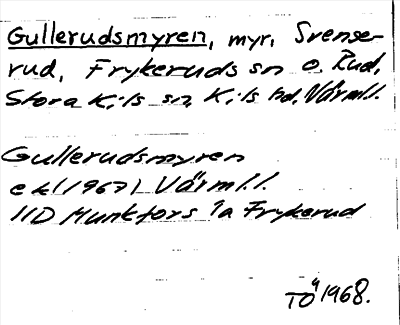 Gullerudsmyren, myr, Svense-
rud, Frykeruds sn o. Rud,
Stora Kils sn, Kils hd, Värml.
Gullerudsmyren
ek (1967) Värml.
11D Munkfors 1a Frykerud
TÖ 1968.